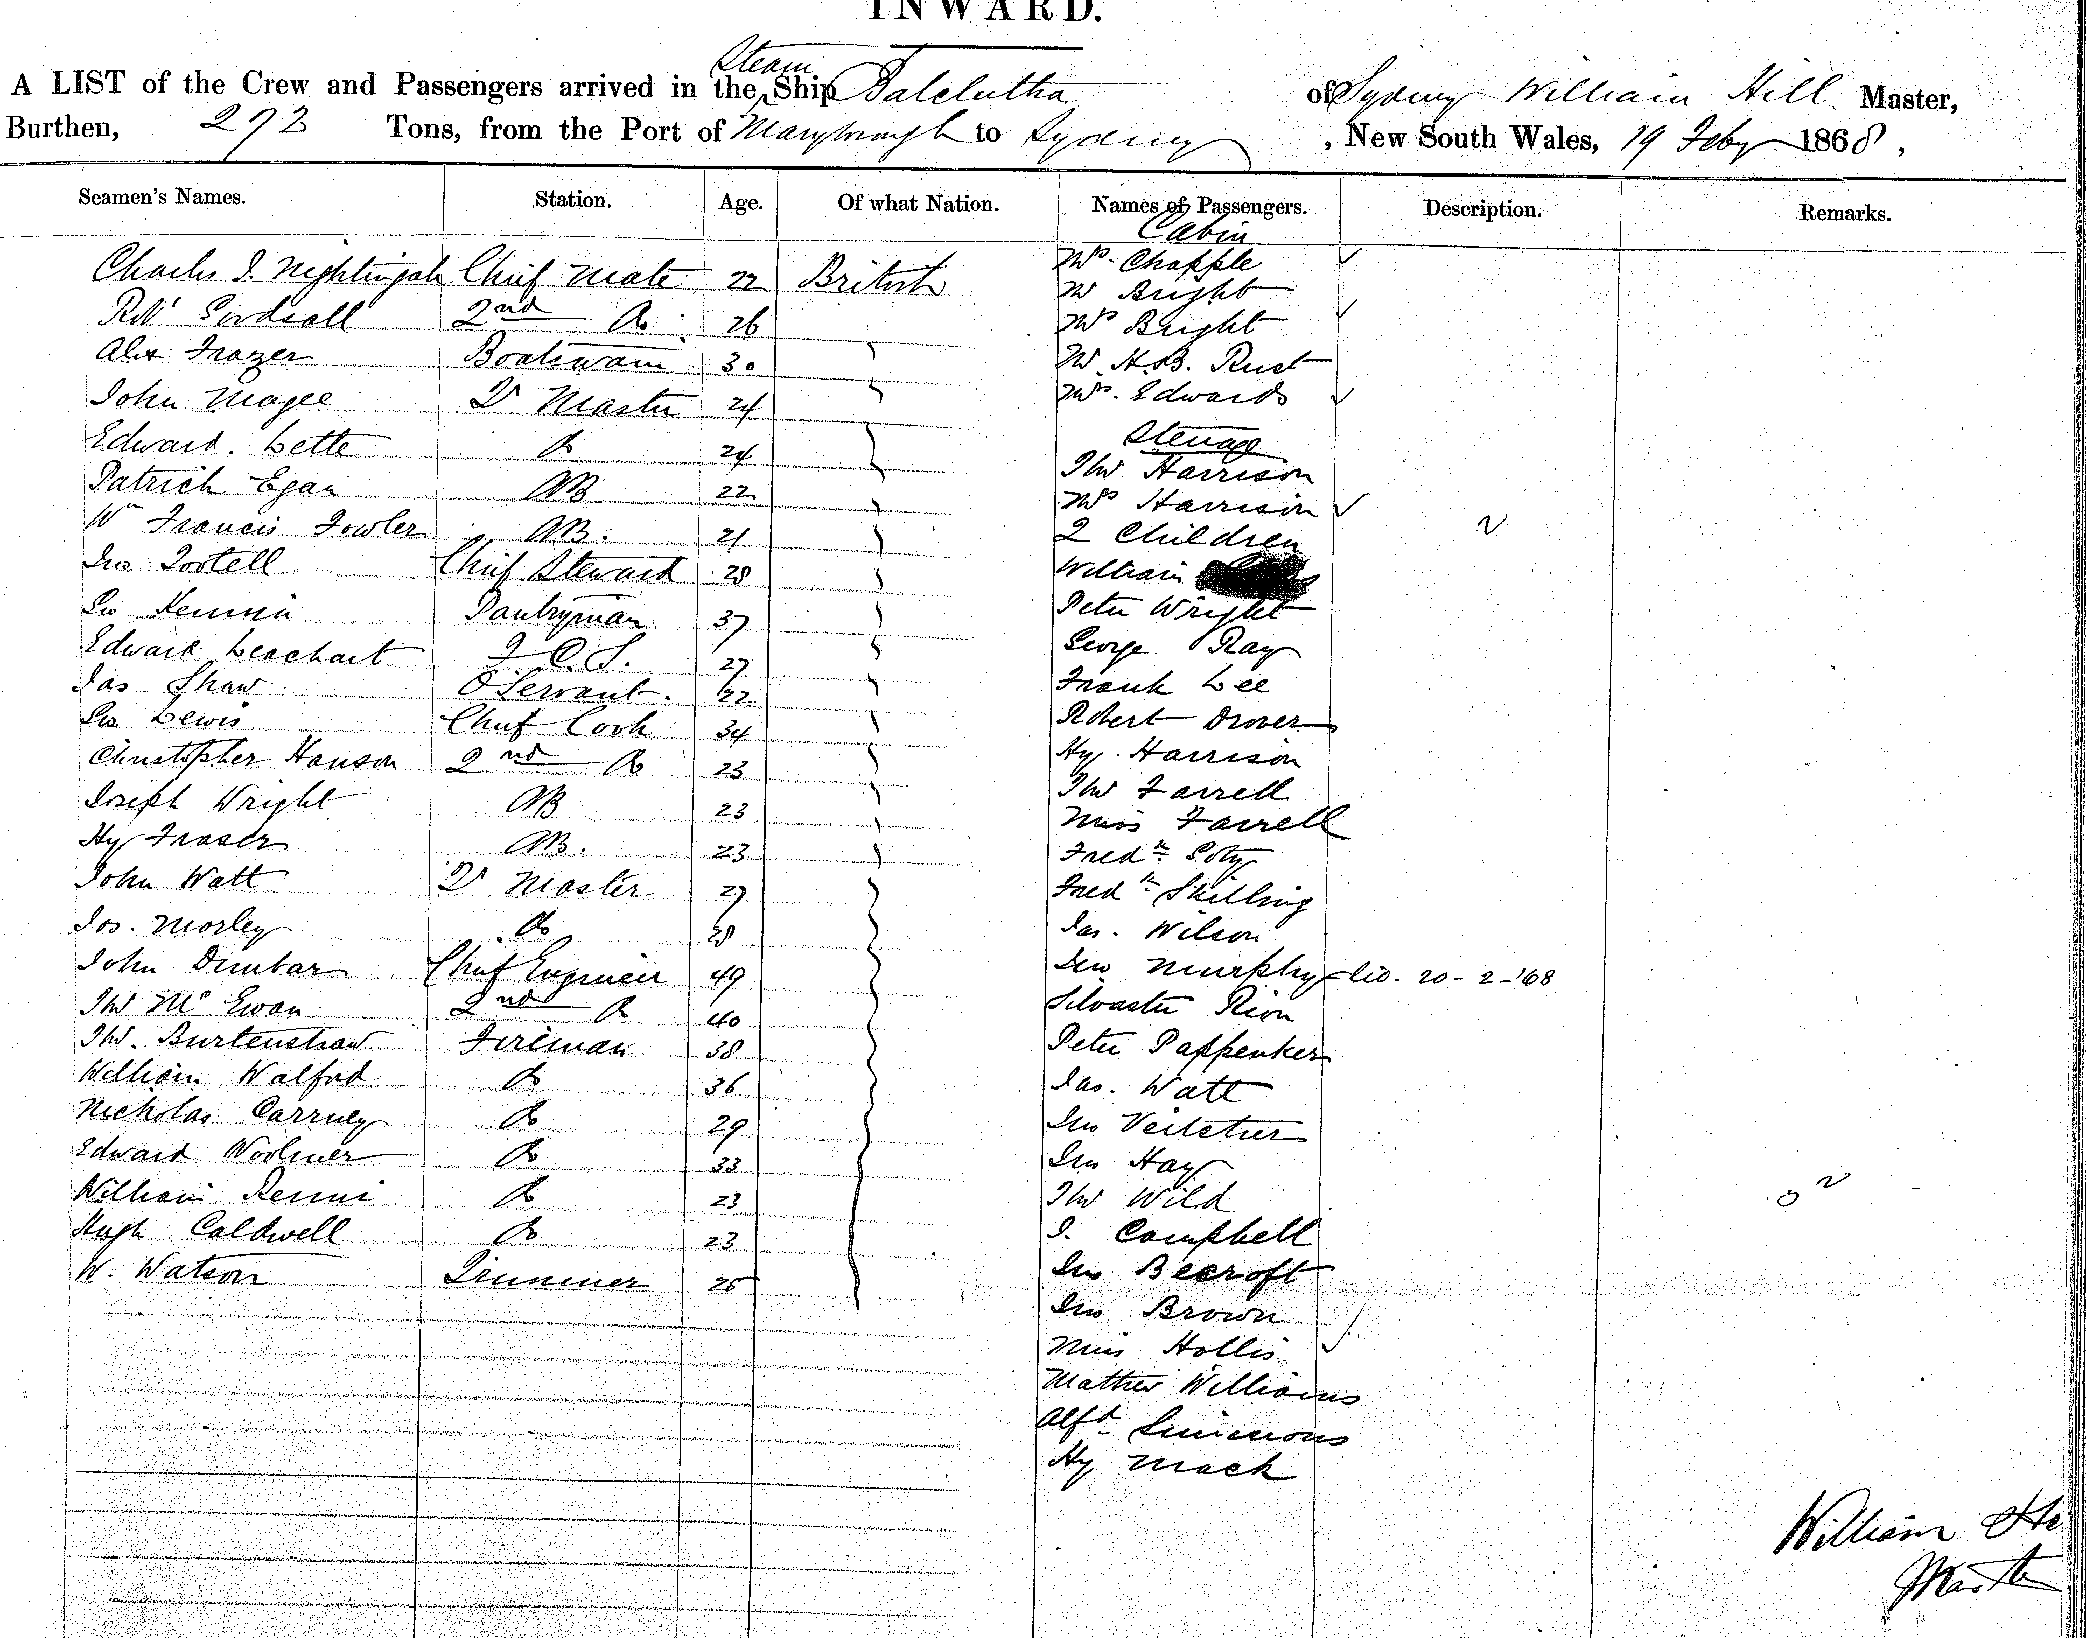 INWARD.
Steam
A LIST of the Crew and Passengers arrived in the Ship Balclutha of Sydney William Hill Master,
Burthen, 272 Tons, from the Port of Maryborough to Sydney, New South Wales, 19 Feby 1868,
Seamen's Names. Station. Age. Of what Nation. Names of Passengers. Description. Remarks.
Cabin
Charles J. Nightingale Chief Mate 22 British Mrs. Chapple
Mr Bright
2nd Do. 26 Mrs Bright
Alex Frazer Boatswain 30 Mr. H. B. Rust
John Magee Qr Master 24 Mrs. Edwards
Steerage
Edward. Lette Do 24 Thos Harrison
Patrick Egan AB 22 Mrs Harrison
Wm Francis Fowler AB. 21 2 Children
Jno Tootell Chief Steward 28 William
Pantryman 37 Peter Wright
Edward 27 George Ray
Jas Shaw Servant. 22 Frank Lee
Lewis Chief Cook 34 Robert Drover
Christopher Hanson 2nd Do 23 Hy. Harrison
Joseph Wright AB 23 Thos Farrell
Miss Farrell
Hy Fraser AB. 23 Fredk
John Watt Qr Master 27 Fredk Skilling
Jos. Morley Do 28 Jas. Wilson
John Dunbar Chief Engineer 49 Jno Murphy 20-2-'68
Thos McEwan 2nd Do 40 Silvaster Rion
Thos. Burtenshaw Fireman 38 Peter Pappenker
William Walford Do 36 Jas. Watt
Nicholas Carrney Do 29 Jno
Edward Woolmer Do 33 Jno Hay
William Rennie Do 23 Thos Wild
Hugh Caldwell Do 23 J. Campbell
W. Watson Trimmer 25 Jno Becroft
Jno Brown
Miss Hollis
Mathew Williams
Alfd Simmons
Hy Mack
William
Master